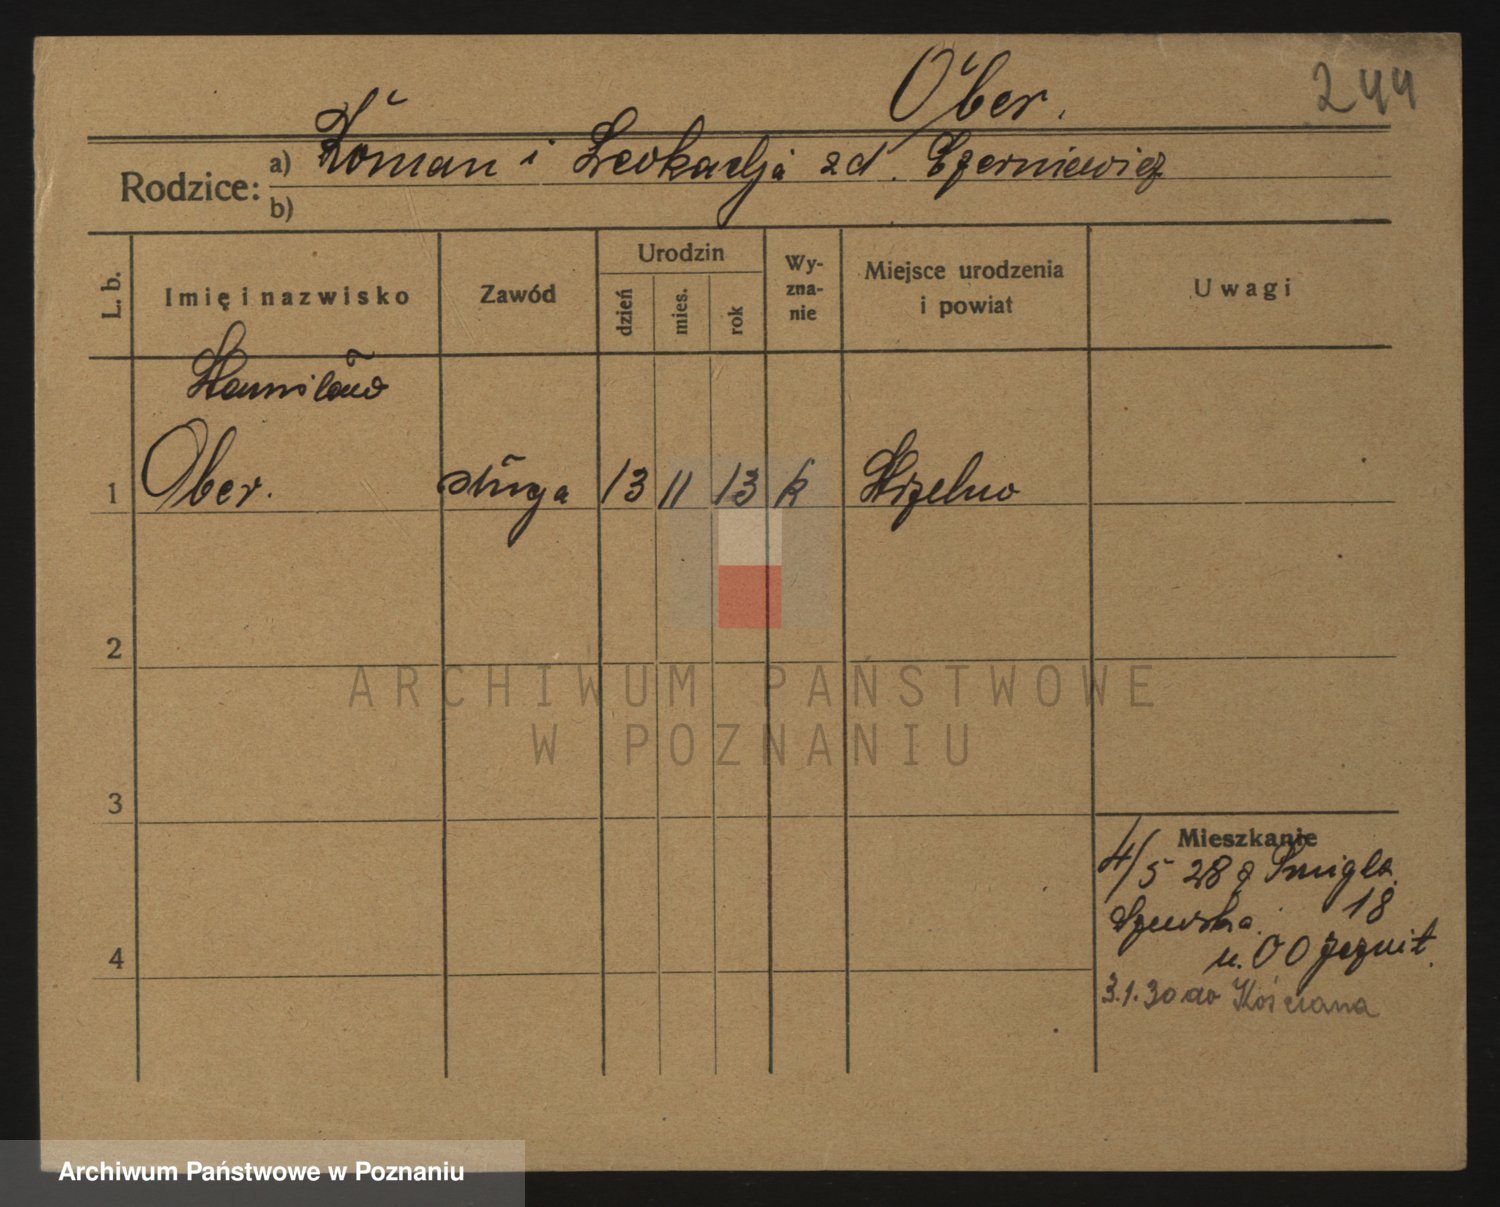 Ober.
244
Rodzice: a) Roman i Leokadja zd. Czerniewicz
b)
L. b.
Imię i nazwisko
Zawód
Urodzin
dzień
mies.
rok
Wy-
zna-
nie
Miejsce urodzenia
i powiat
Uwagi
Stanisław
1 Ober. sługa 13 11 13 k Strzelno
2
3
4
ARCHIWUM PAŃSTWOWE
W POZNANIU
Mieszkanie
4/5 28 z Śmigla
Szewska 18
u. OO Jezuit.
3.1.30 do Kościana
Archiwum Państwowe w Poznaniu